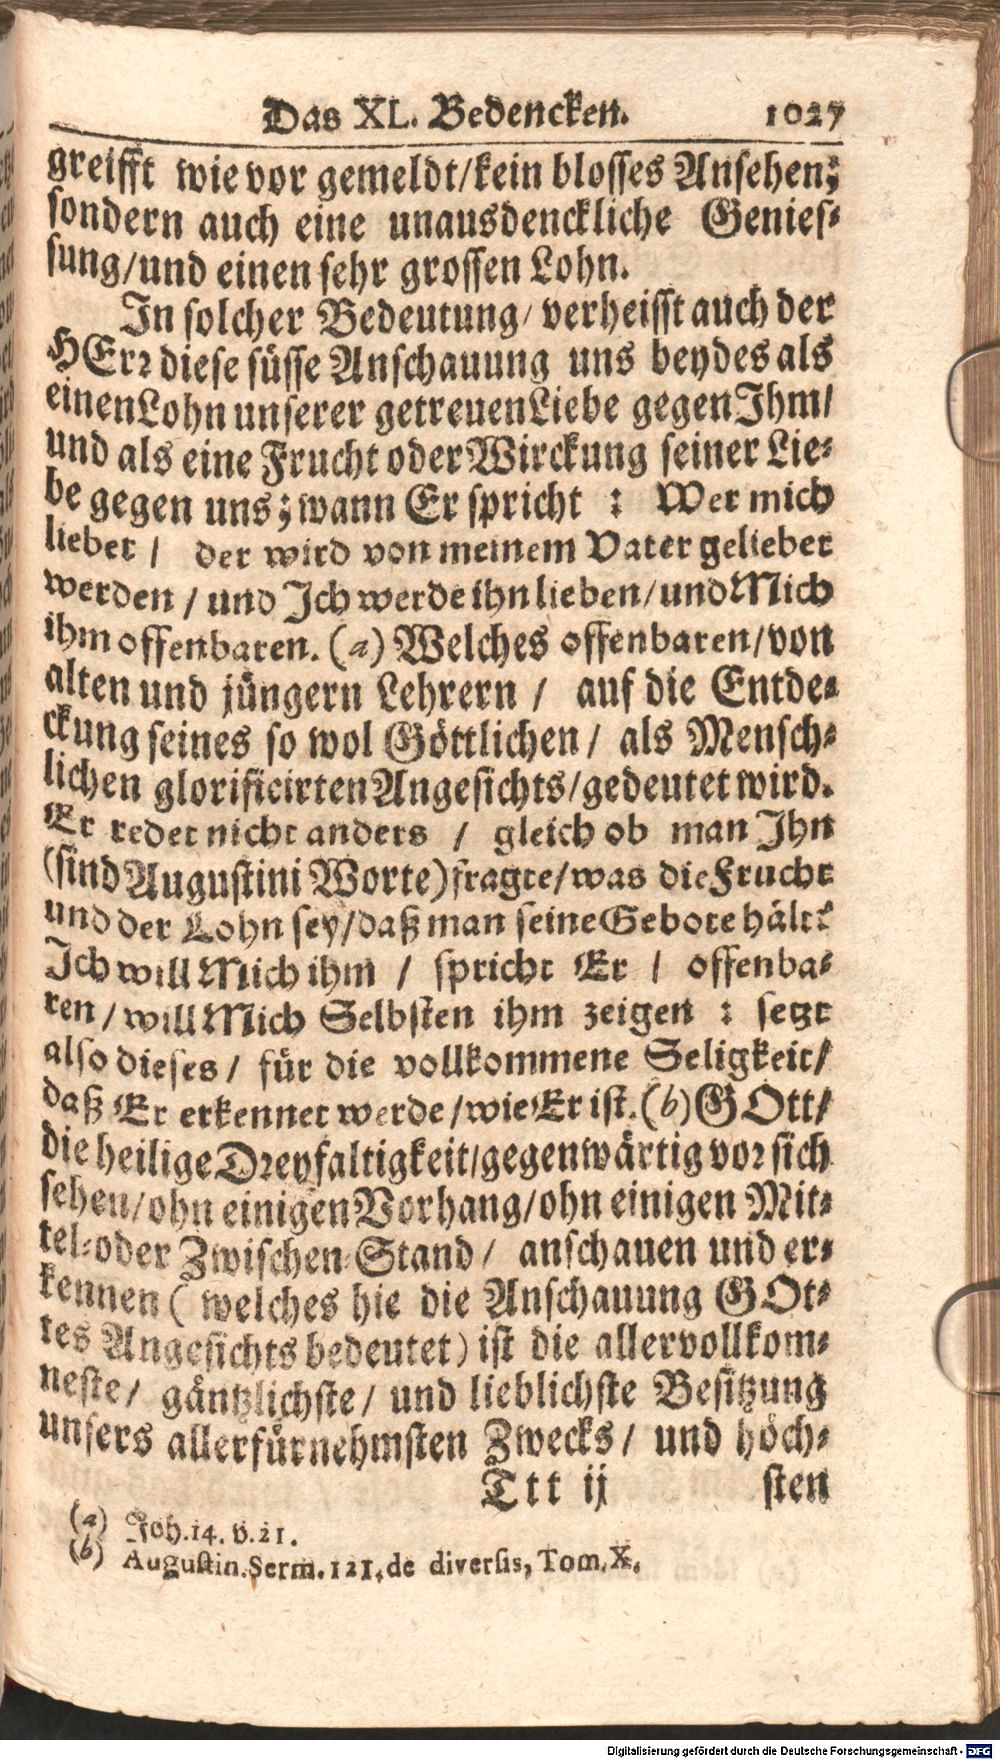 Das XL. Bedencken. 1027
greifft wie vor gemeldt/kein blosses Ansehen;
sondern auch eine unausdenckliche Genies-
sung/und einen sehr grossen Lohn.
In solcher Bedeutung/ verheisst auch der
HErr diese süsse Anschauung uns beydes als
einen Lohn unserer getreuen Liebe gegen Ihm/
und als eine Frucht oder Wirckung seiner Lie-
be gegen uns; wann Er spricht : Wer mich
liebet / der wird von meinem Vater geliebet
werden / und Ich werde ihn lieben/und Mich
ihm offenbaren. (a) Welches offenbaren/von
alten und jüngern Lehrern / auf die Entde-
ckung seines so wol Göttlichen / als Mensch-
lichen glorificirten Angesichts/gedeutet wird.
Er redet nicht anders / gleich ob man Ihn
(sind Augustini Worte) fragte/was die Frucht
und der Lohn sey/daß man seine Gebote hält?
Ich will Mich ihm / spricht Er / offenba-
ren/will Mich Selbsten ihm zeigen : setzt
also dieses/ für die vollkommene Seligkeit/
daß Er erkennet werde/wie Er ist. (b) GOtt/
die heilige Dreyfaltigkeit/gegenwärtig vor sich
sehen/ohn einigen Vorhang/ohn einigen Mit-
tel-oder Zwischen-Stand/ anschauen und er-
kennen ( welches hie die Anschauung GOt-
tes Angesichts bedeutet) ist die allervollkom-
neste/ gäntzlichste/ und lieblichste Besitzung
unsers allerfürnehmsten Zwecks/ und höch-
Ttt ij sten
(a) Joh.14. v.21.
(b) Augustin.Serm.121.de diversis, Tom.X.
Digitalisierung gefördert durch die Deutsche Forschungsgemeinschaft - DFG